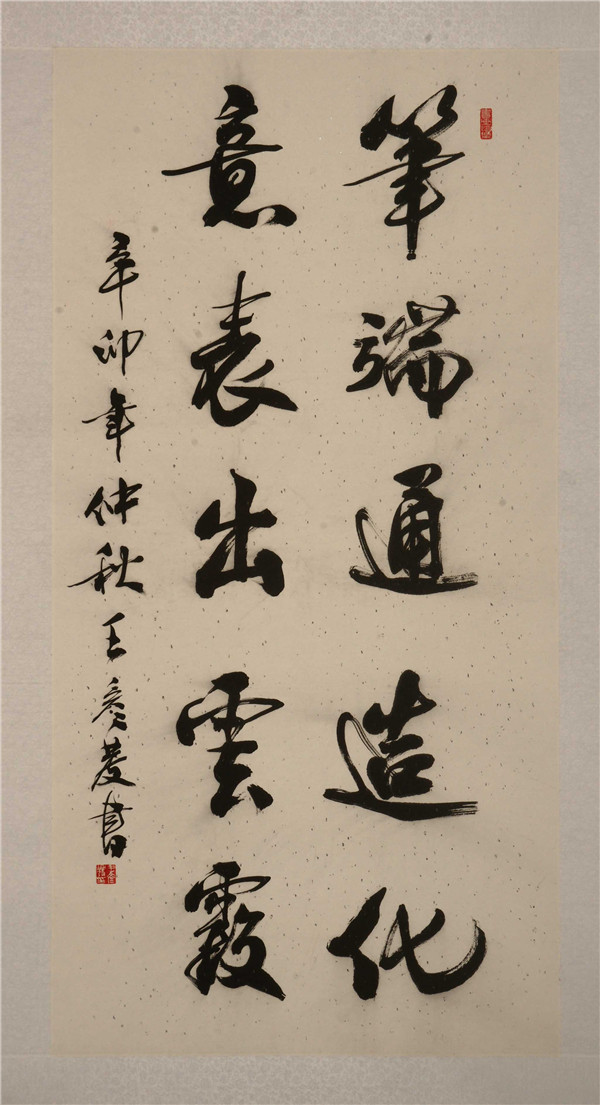 筆端通造化
意表出雲霞
辛卯年仲秋王彦慶書